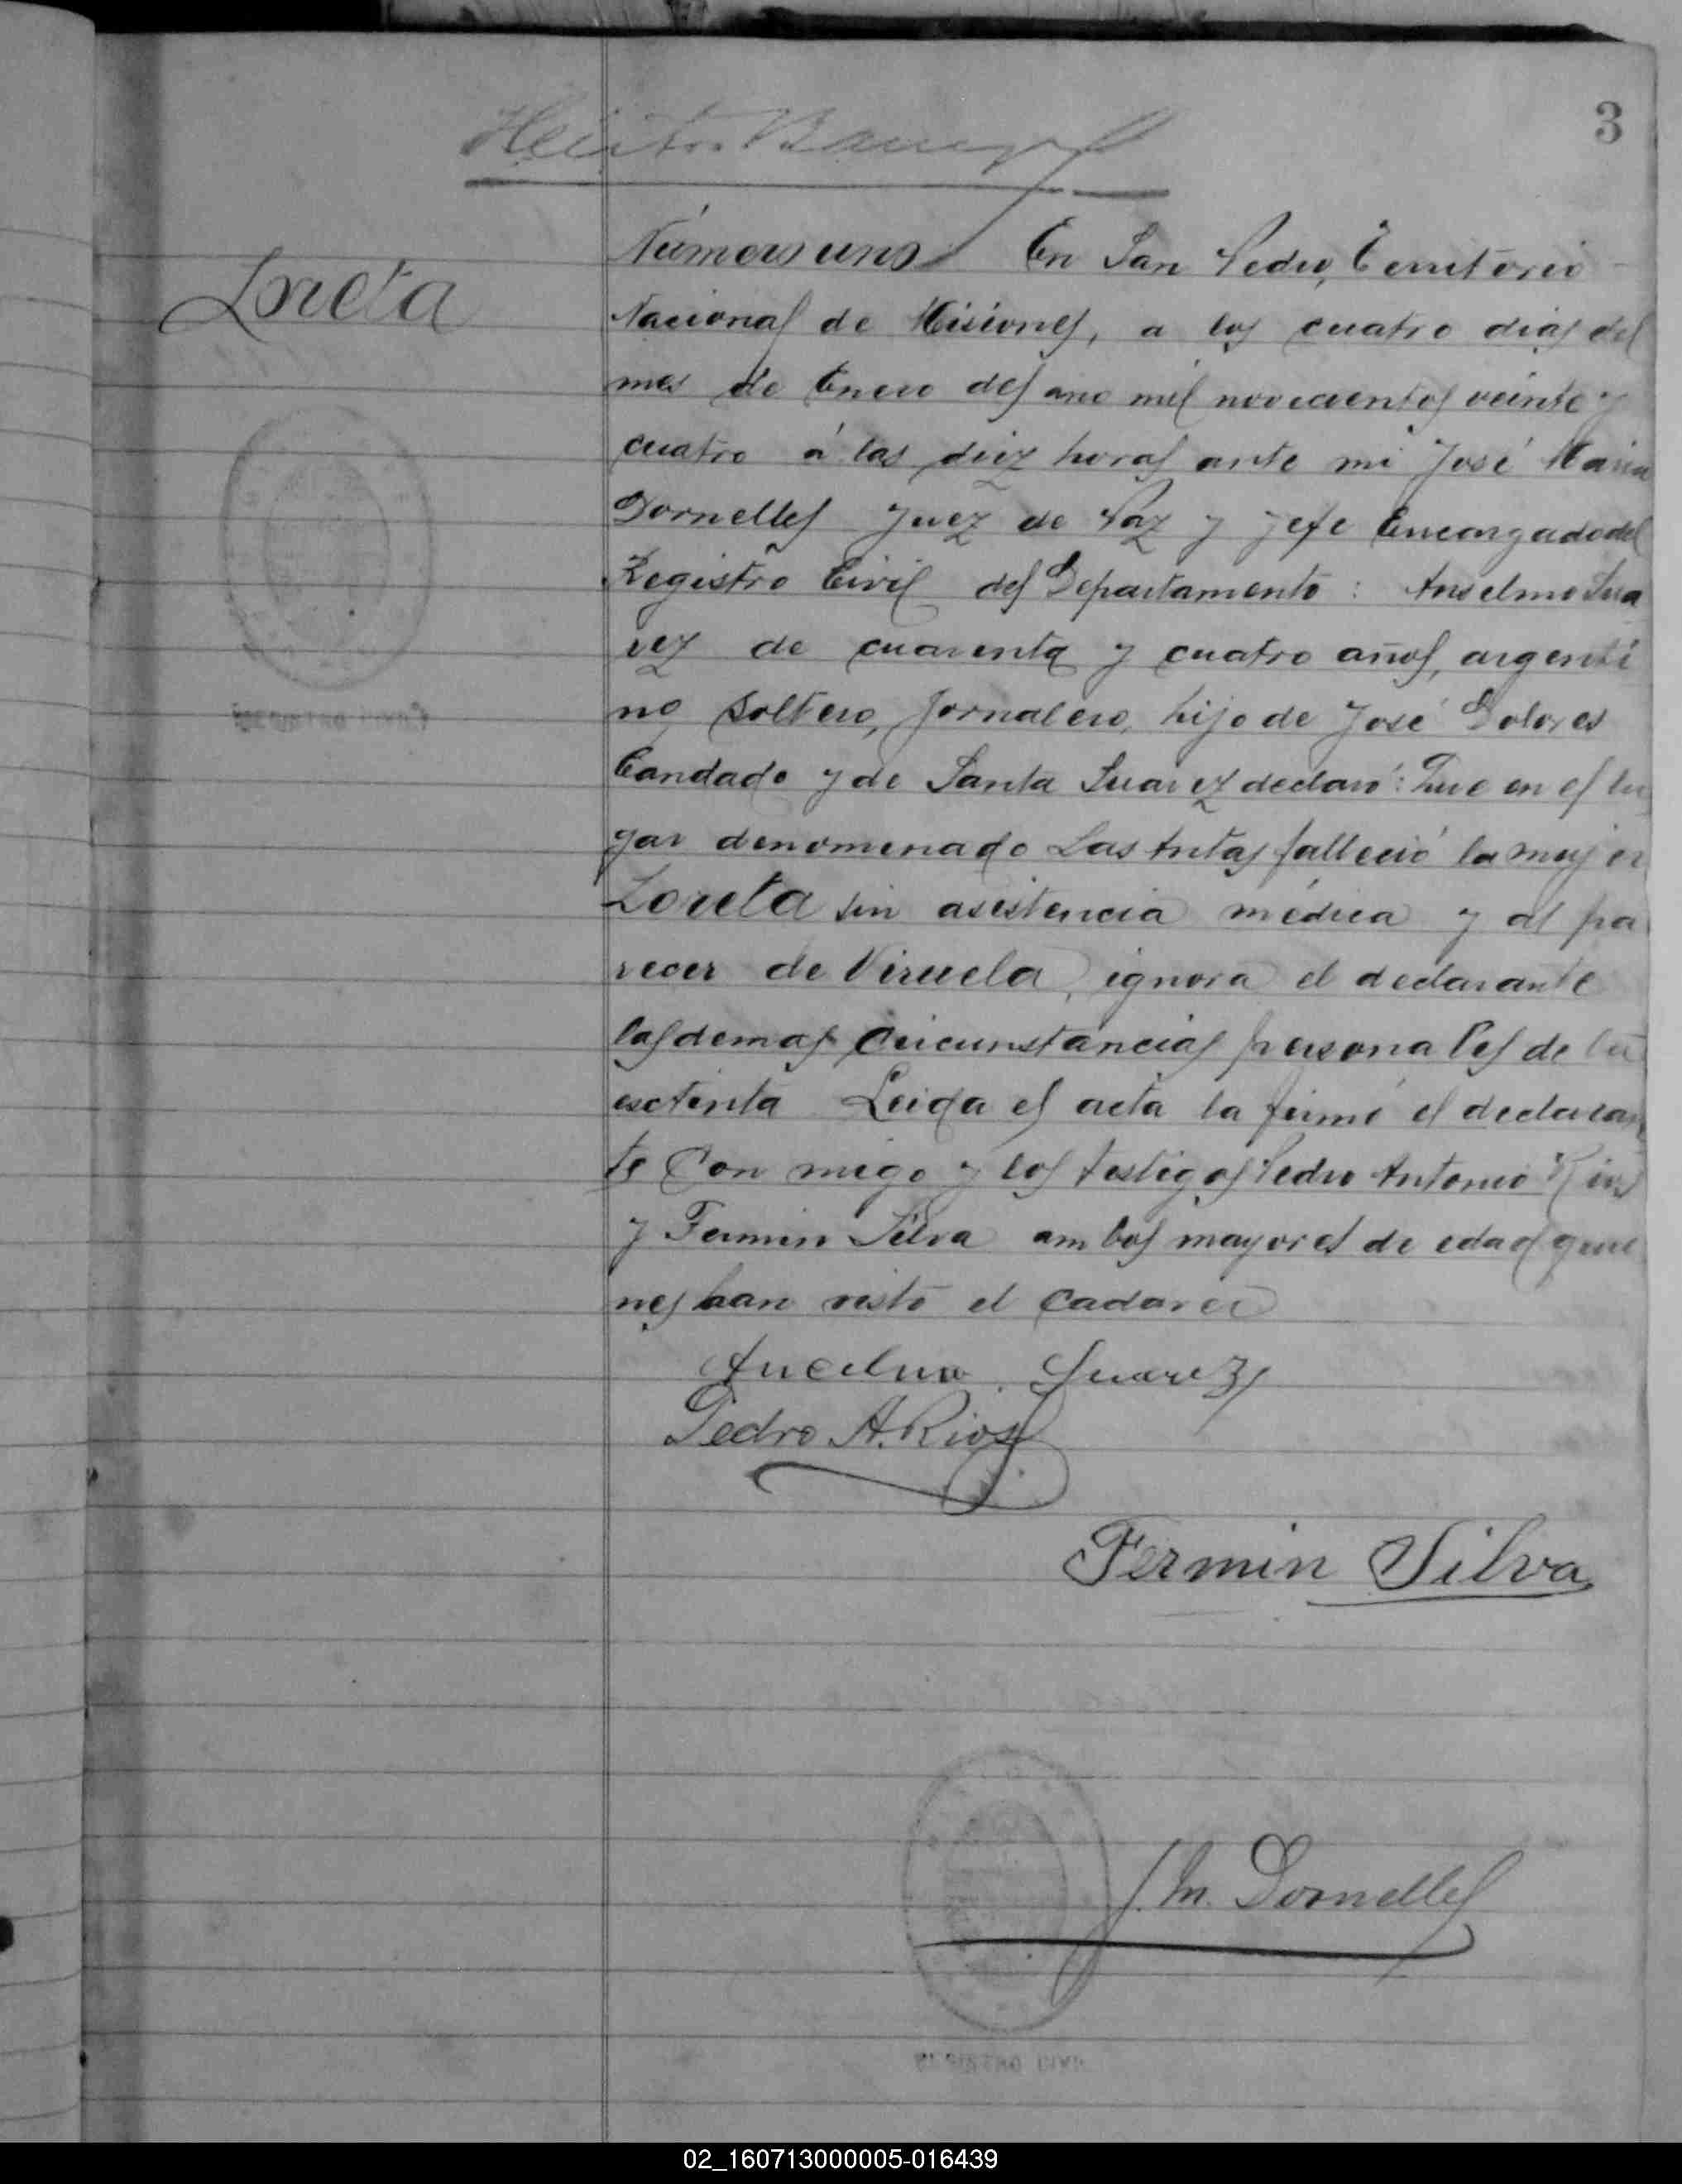 3
Loreta
Número uno En San Pedro, Territorio
Nacional de Misiones, a los cuatro dias del
mes de Enero del ano mil novecientos veinte y
cuatro á las diez horas ante mi José Maria
Dornelles Juez de Paz y Jefe Encargado del
Registro Civil del Departamento: Anselmo Sua
rez de cuarenta y cuatro años, argenti
no, soltero, jornalero, hijo de José Dolores
Candado y de Santa Suarez declaró: Que en el lu
gar denomenado Las Antas falleció la mujer
Loreta sin asistencia médica y al pa
recer de Viruela, ignora el declarante
las demas circunstancias personales de la
esctinta Leida el acta la firmó el declaran
te Con migo y los testigos Pedro Antonio Rios
y Fermin Silva ambos mayores de edad quie
nes han visto el cadaver
Ancelmo Suarez
Pedro A. Rios
Fermin Silva
J. M. Dornelles
02_160713000005-016439